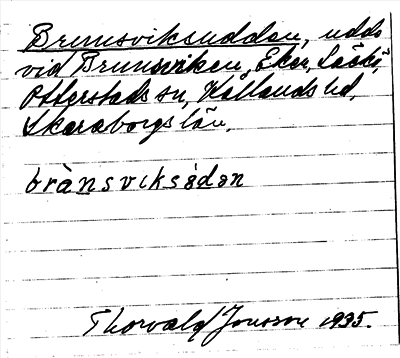 Brunsviksudden, udde
vid Brunsviken, Eker, Läckö,
Otterstads sn, Kållands hd,
Skaraborgs län.
brànsviksúdən
Thorvald Jonsson 1935.